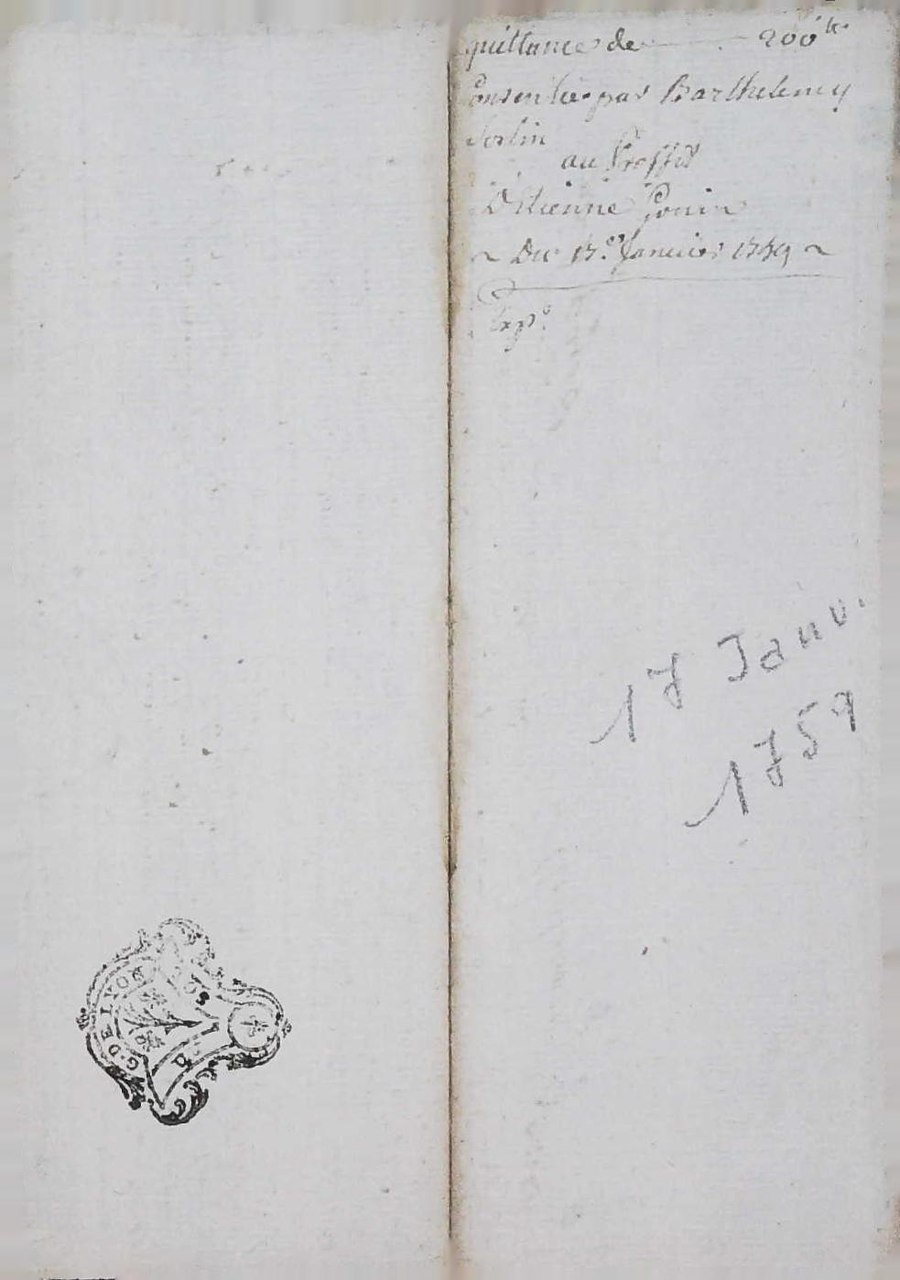 quittance de 200 lt
Consentie par Barthelemy
au Proffit
D'Etienne
Du 17.e Janvier 1759
Exp.e
17 Janv.
1759
G. DE LYON